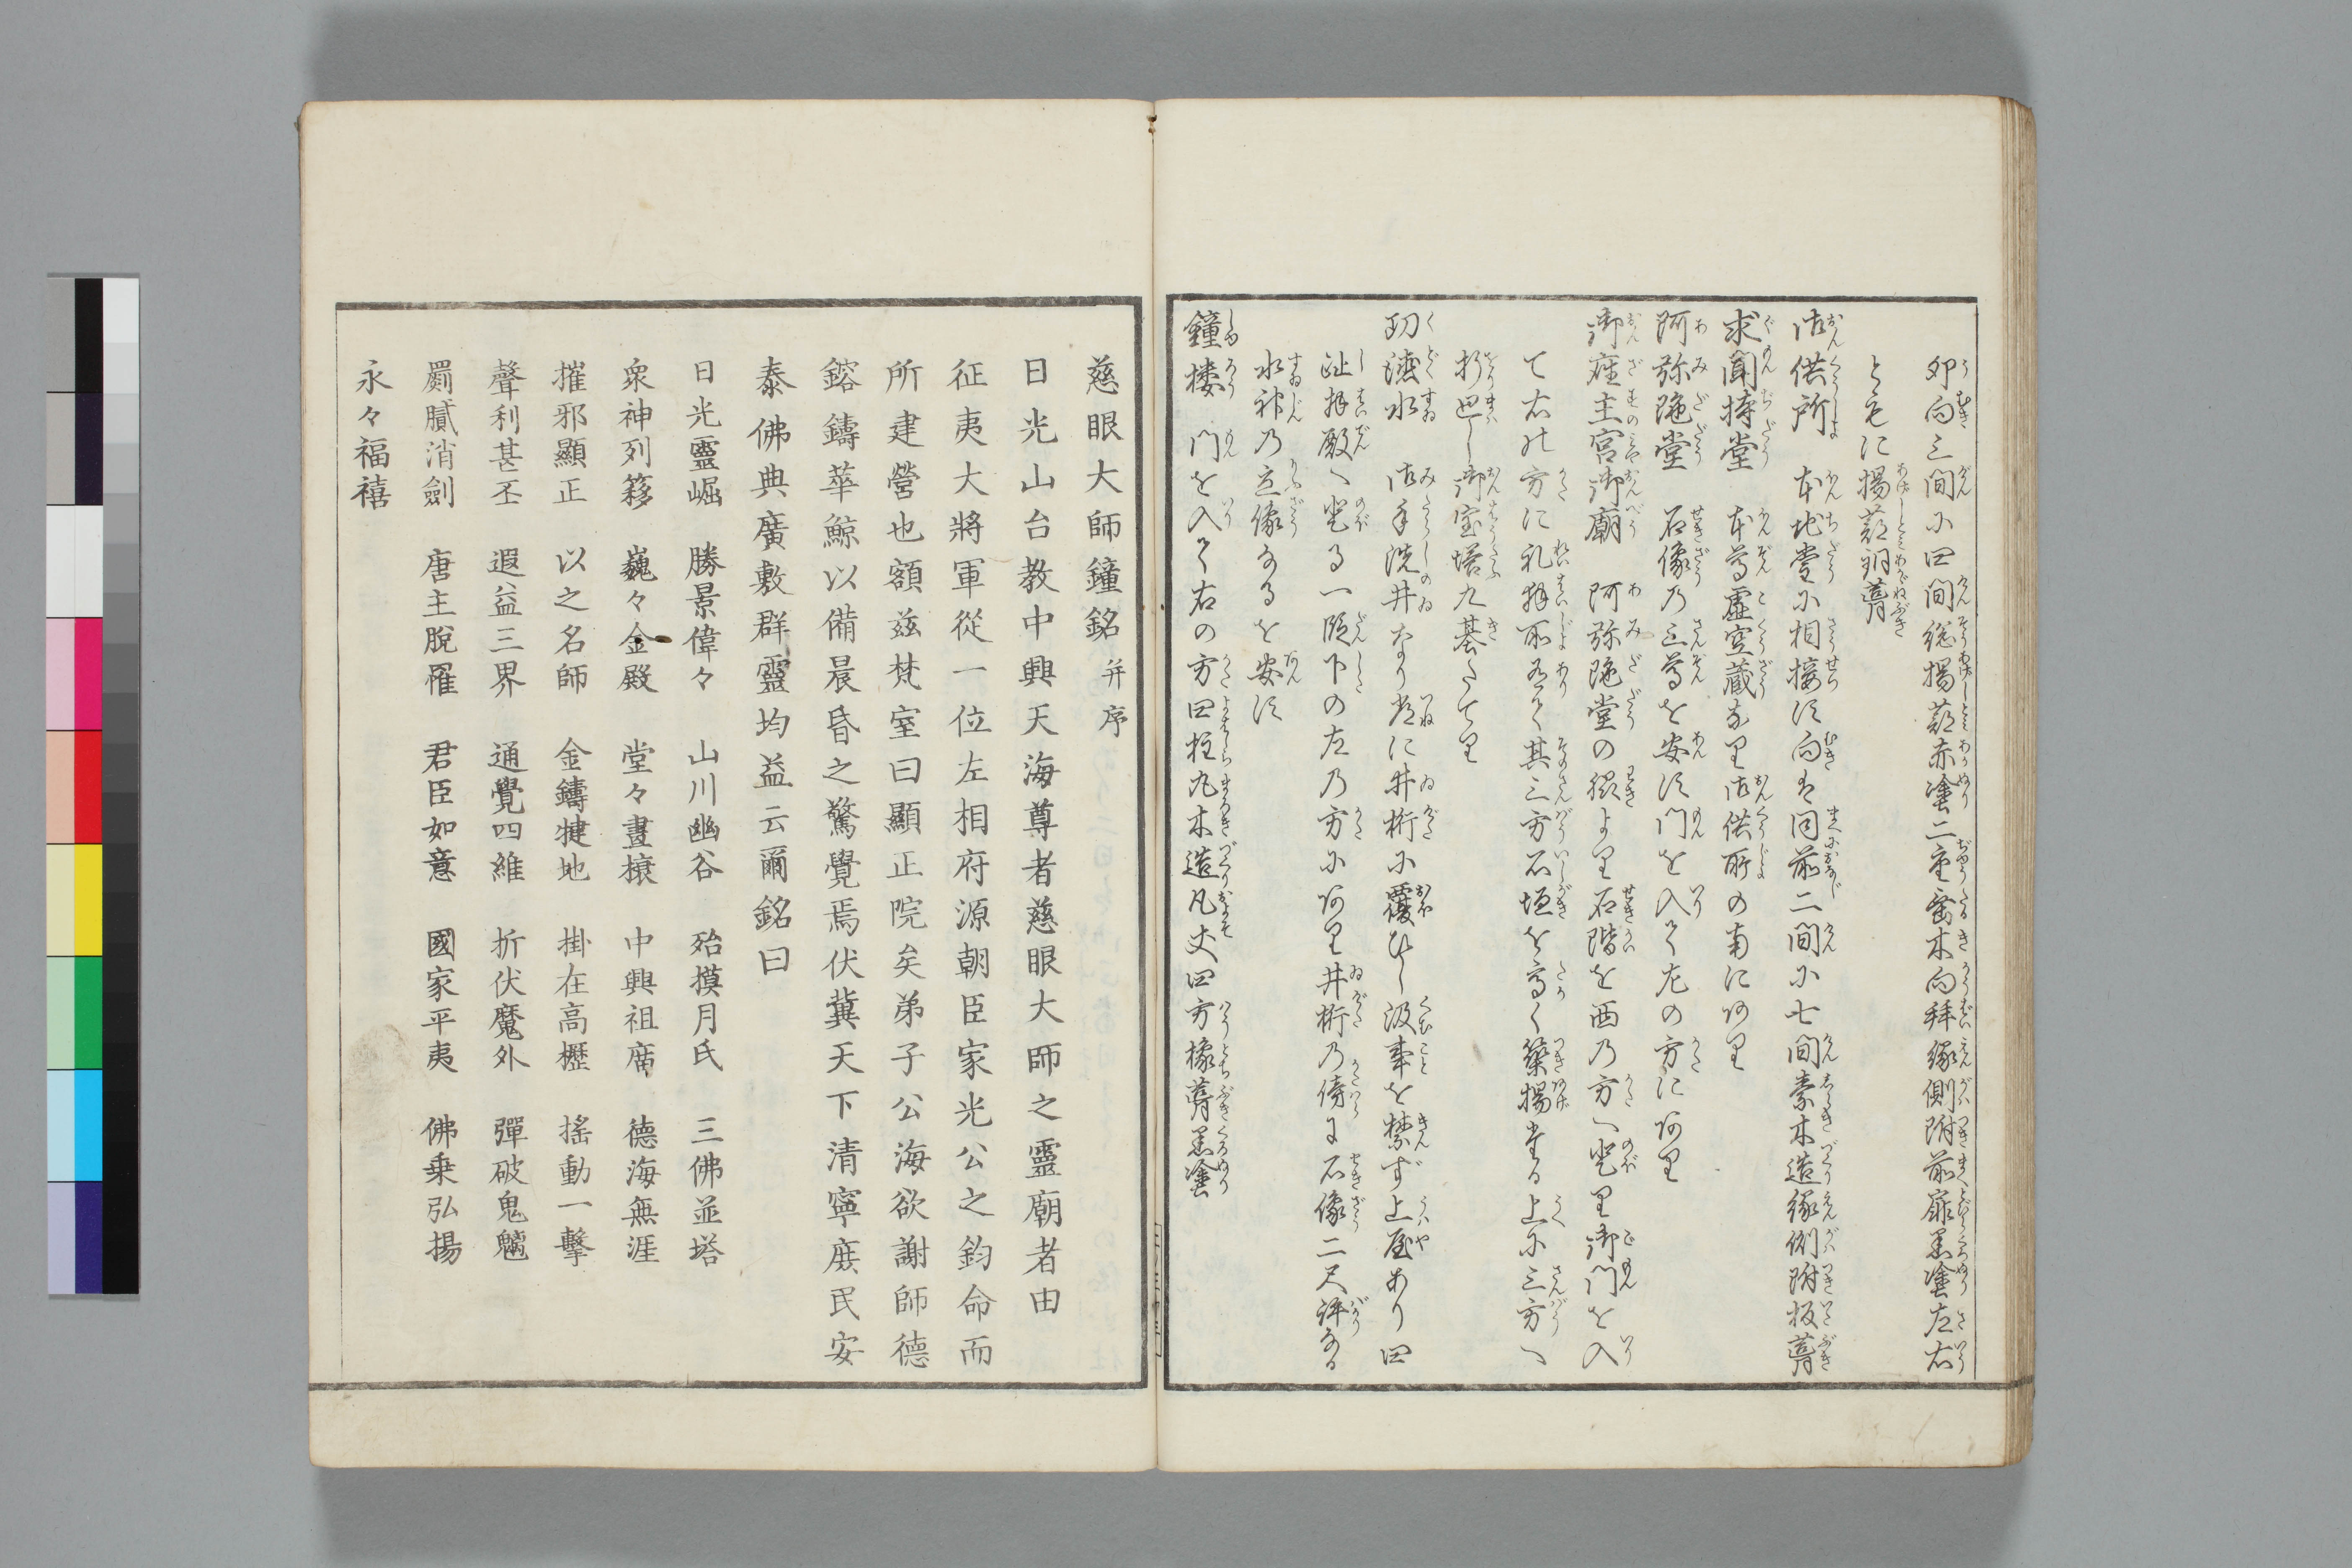 卯向三間に四間総揚蔀赤塗二重垂木向拝縁側附前扉黒塗左右
ともに揚蔀銅葺
御供所　本地堂に相接す向も同前二間に七間素木造縁側附板葺
求聞持堂　本尊虚空蔵なり御供所の南にあり
阿弥陀堂　石像の三尊を安す門を入て左の方にあり
御座主宮御廟　阿弥陀堂の後より石階を西の方へ登り御門を入
て右の方に礼拝所有て其三方石垣を高く築揚たる上に三方へ
折廻し御宝塔九基たてり
功徳水　御手洗井なり常に井桁に覆ひし汲事を禁ず上屋あり四
趾拝殿へ登る一段下の左の方にあり井桁の傍に石像二尺許なる
水神の立像なるを安す
鐘楼　門を入て右の方四柱丸木造凡丈四方橡葺黒塗
慈眼大師鐘銘并序
日光山台教中興天海尊者慈眼大師之靈廟者由
征夷大將軍從一位左相府源朝臣家光公之鈞命而
所建營也額茲梵室曰顯正院矣弟子公海欲謝師德
鎔鑄華鯨以備晨昏之驚覺焉伏冀天下清寧庶民安
泰佛典廣敷群靈均益云爾銘曰
日光靈崛　勝景偉々　山川幽谷　殆摸月氏　三佛並塔
衆神列簃　巍々金殿　堂々畫榱　中興祖席　德海無涯
摧邪顯正　以之名師　金鑄犍地　掛在高櫪　搖動一擊
聲利甚丕　遐益三界　通覺四維　折伏魔外　彈破鬼魑
罽膩消劍　唐主脫罹　君臣如意　國家平夷　佛乗弘揚
永々福禧